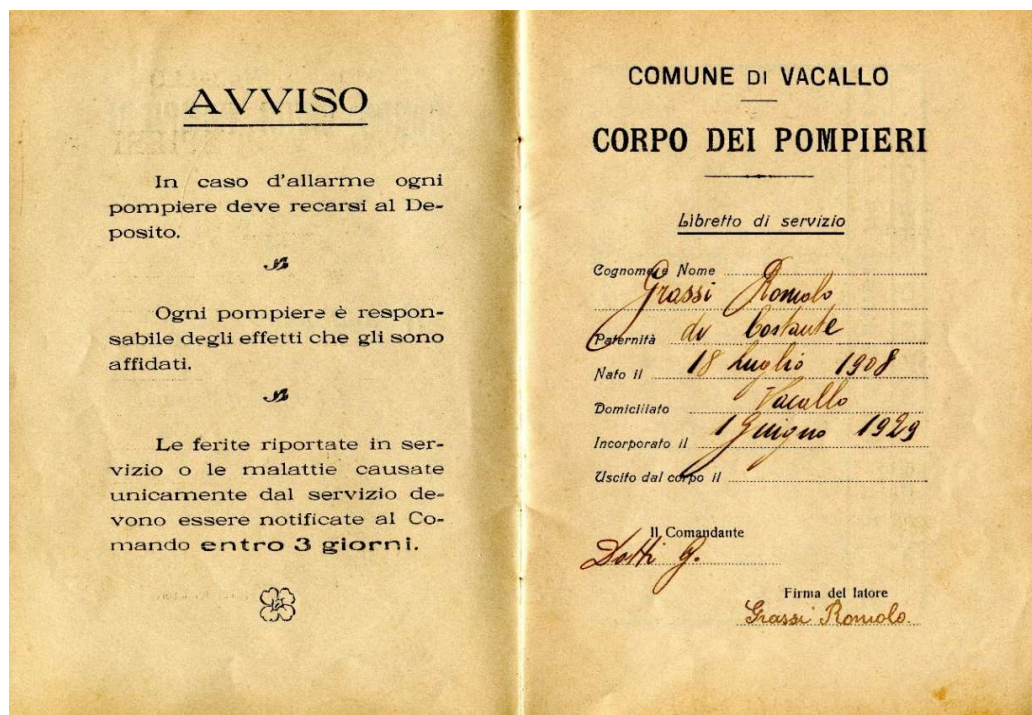 AVVISO
In caso d'allarme ogni
pompiere deve recarsi al De-
posito.
Ogni pompiere è respon-
sabile degli effetti che gli sono
affidati.
Le ferite riportate in ser-
vizio o le malattie causate
unicamente dal servizio de-
vono essere notificate al Co-
mando entro 3 giorni.
COMUNE DI VACALLO
CORPO DEI POMPIERI
Libretto di servizio
Cognome e Nome
Grassi Romolo
Paternità di Costante
Nato il 18 Luglio 1908
Domiciliato Vacallo
Incorporato il 1 Giugno 1929
Uscito dal corpo il
Il Comandante
Dotti G.
Firma del latore
Grassi Romolo.